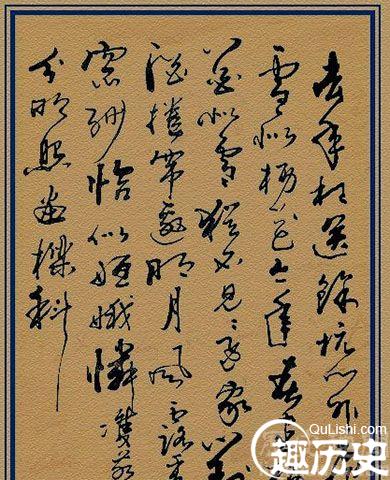 去年相送餘杭門外
雪似楊花今年春
花似雪猶不見還家對
酒捲簾邀明月風露透
窗紗恰似姮娥憐雙燕
分明照畫樑斜
QuLishi.com
趣历史